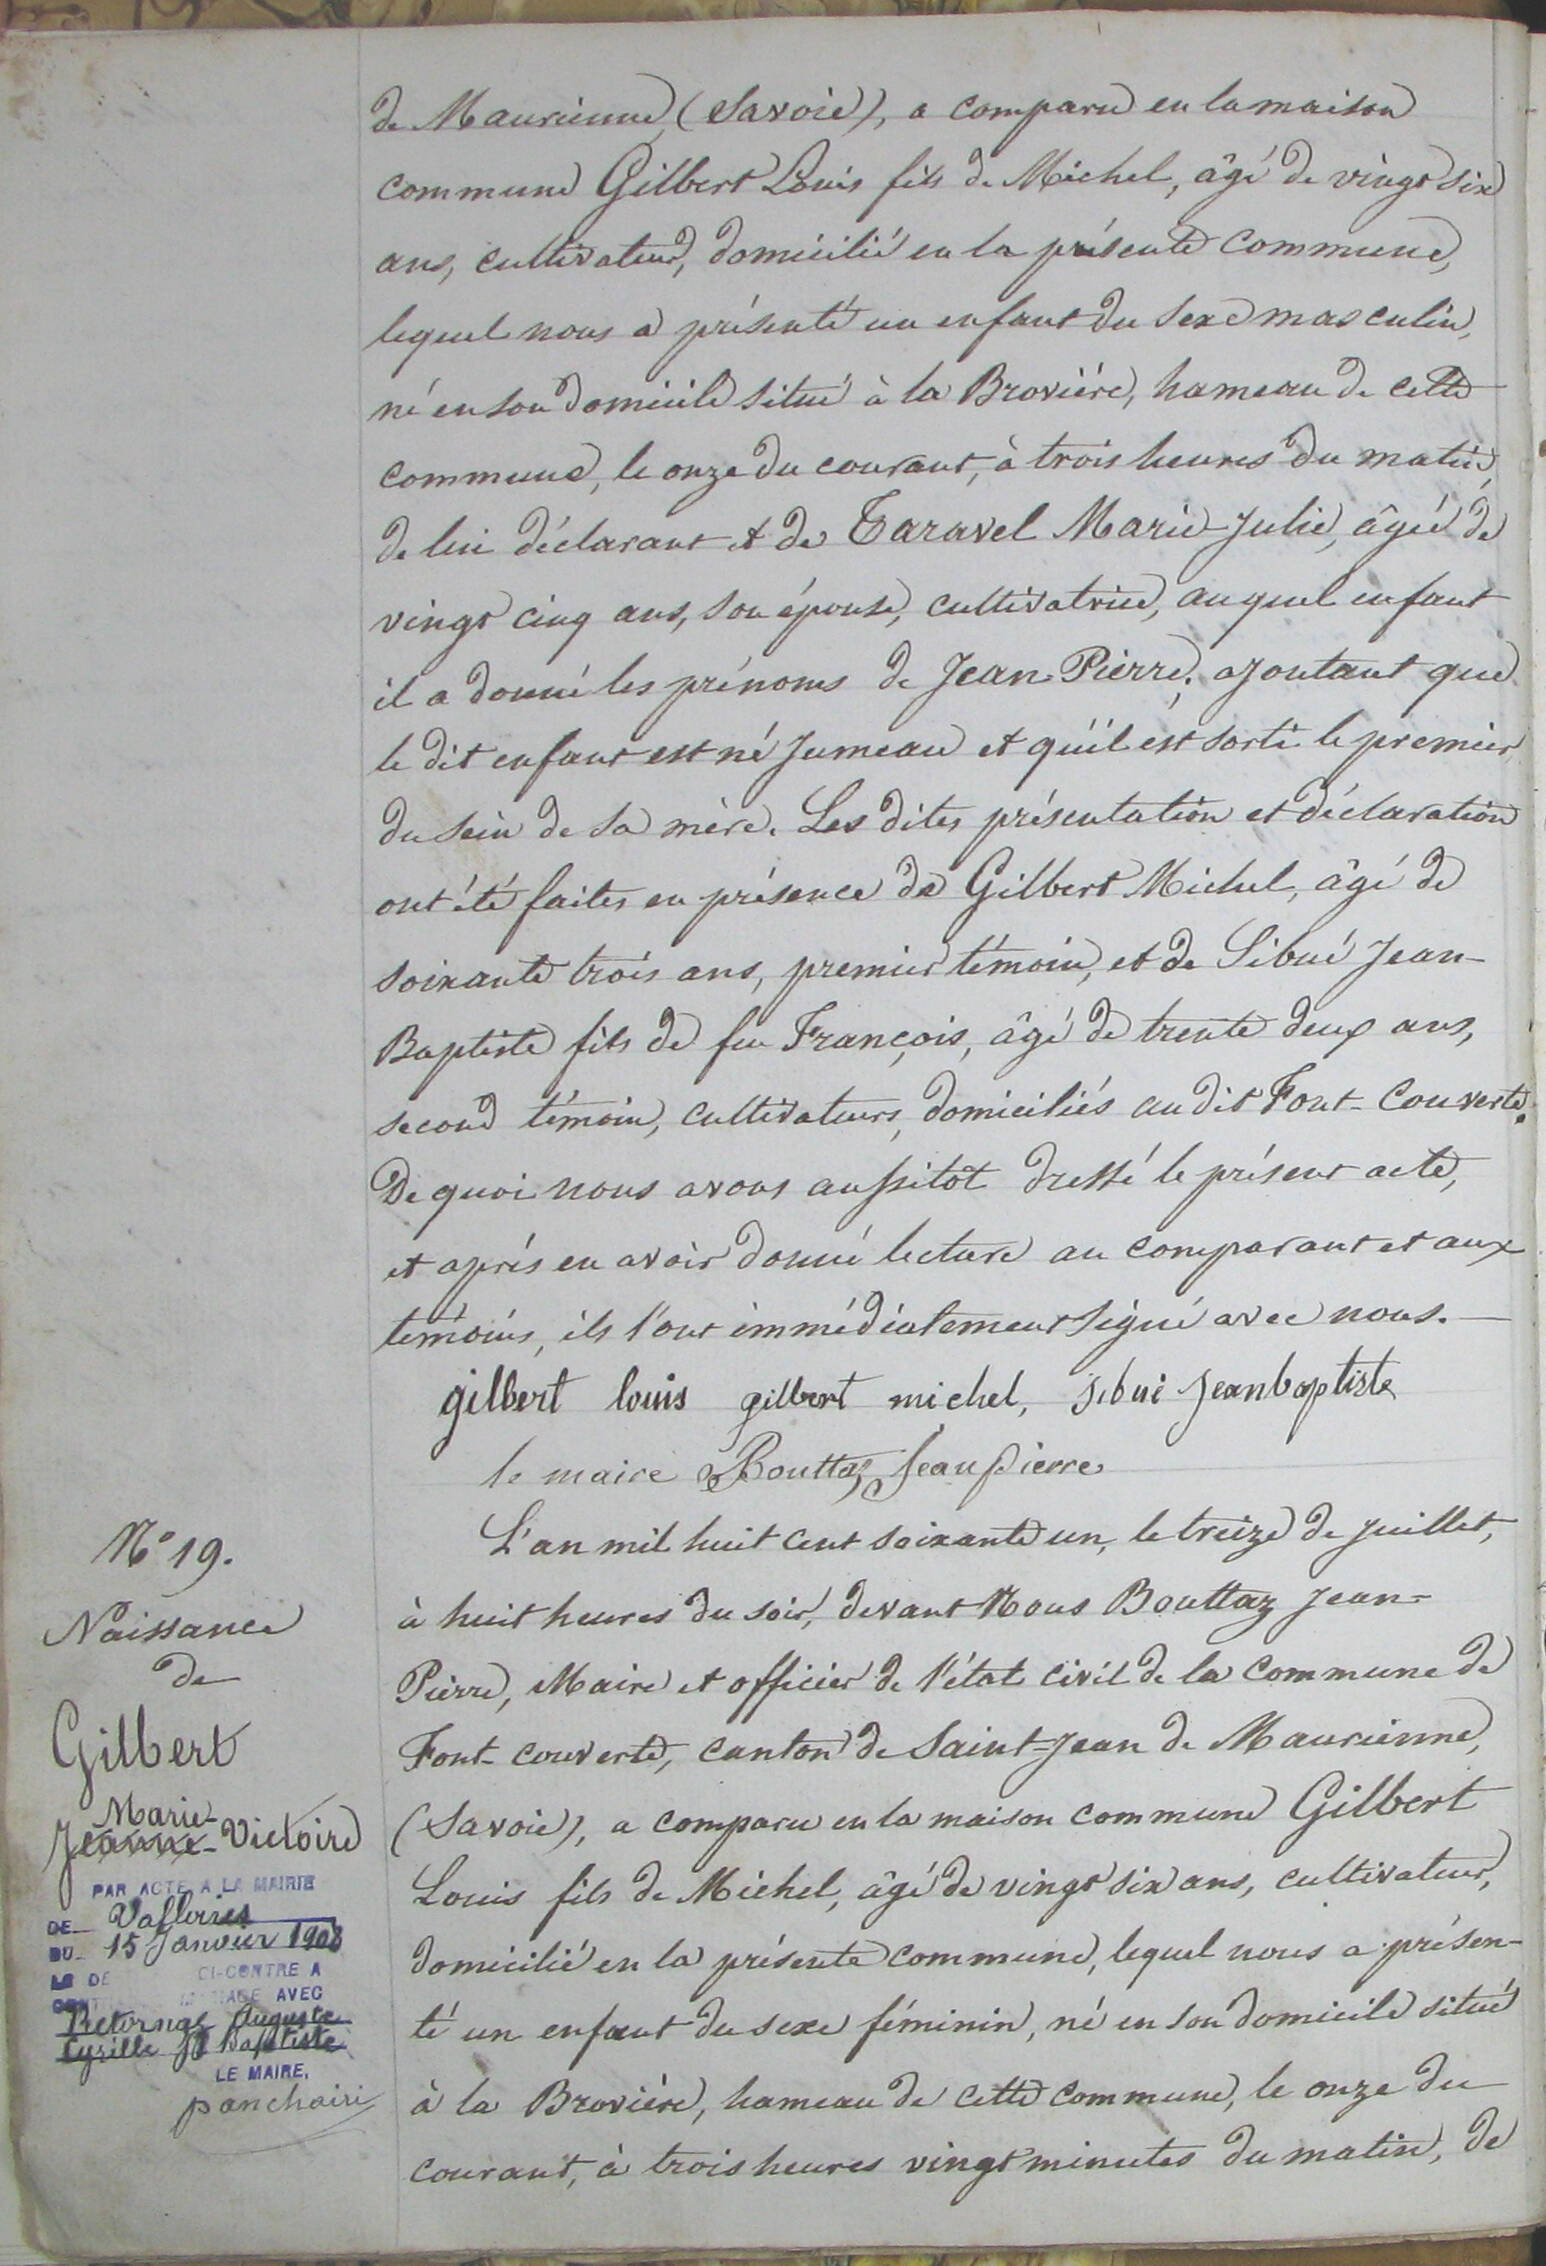 de Maurienne (Savoie), a comparu en la maison
commune Gilbert Louis fils de Michel, âgé de vingt six
ans, cultivateur, domicilié en la présente commune,
lequel nous a présenté un enfant du sexe masculin,
né en son domicile situé à la Brovière, hameau de cette
commune, le onze du courant, à trois heures du matin,
de lui déclarant et de Taravel Marie-Julie, âgée de
vingt cinq ans, son épouse, cultivatrice, auquel enfant
il a donné les prénoms de Jean-Pierre, ajoutant que
le dit enfant est né Jumeau et qu'il est sorti le premier
du sein de sa mère. Les dites présentation et déclaration
ont été faites en présence de Gilbert Michel, âgé de
soixante trois ans, premier témoin, et de Sibué Jean-
Baptiste fils de feu François, âgé de trente deux ans,
second témoin, cultivateurs, domiciliés audit Font-Couverte.
De quoi nous avons aussitôt dressé le présent acte,
et après en avoir donné lecture au comparant et aux
témoins, ils l'ont immédiatement signé avec nous.
gilbert louis gilbert michel, sibué Jeanbaptiste
le maire Bouttaz Jean pierre
N° 19.
Naissance
de
Gilbert
Marie-
Jeanne-Victoire
PAR ACTE A LA MAIRIE
DE
DU 15 Janvier 1908
LE DE CI-CONTRE A
AVEC
Retornaz Auguste
Cyrille Jn Baptiste
LE MAIRE,
L'an mil huit cent soixante un, le treize de juillet,
à huit heures du soir, devant Nous Bouttaz Jean-
Pierre, Maire et officier de l'état civil de la commune de
Font-couverte, canton de Saint-Jean de Maurienne,
(Savoie), a comparu en la maison commune Gilbert
Louis fils de Michel, âgé de vingt six ans, cultivateur,
domicilié en la présente commune, lequel nous a présen-
té un enfant du sexe féminin, né en son domicile situé
à la Brovière, hameau de cette commune, le onze du
courant, à trois heures vingt minutes du matin, de